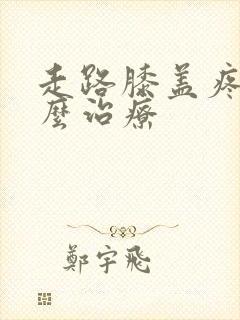 走路膝盖疼
麼治療
鄭宇飛